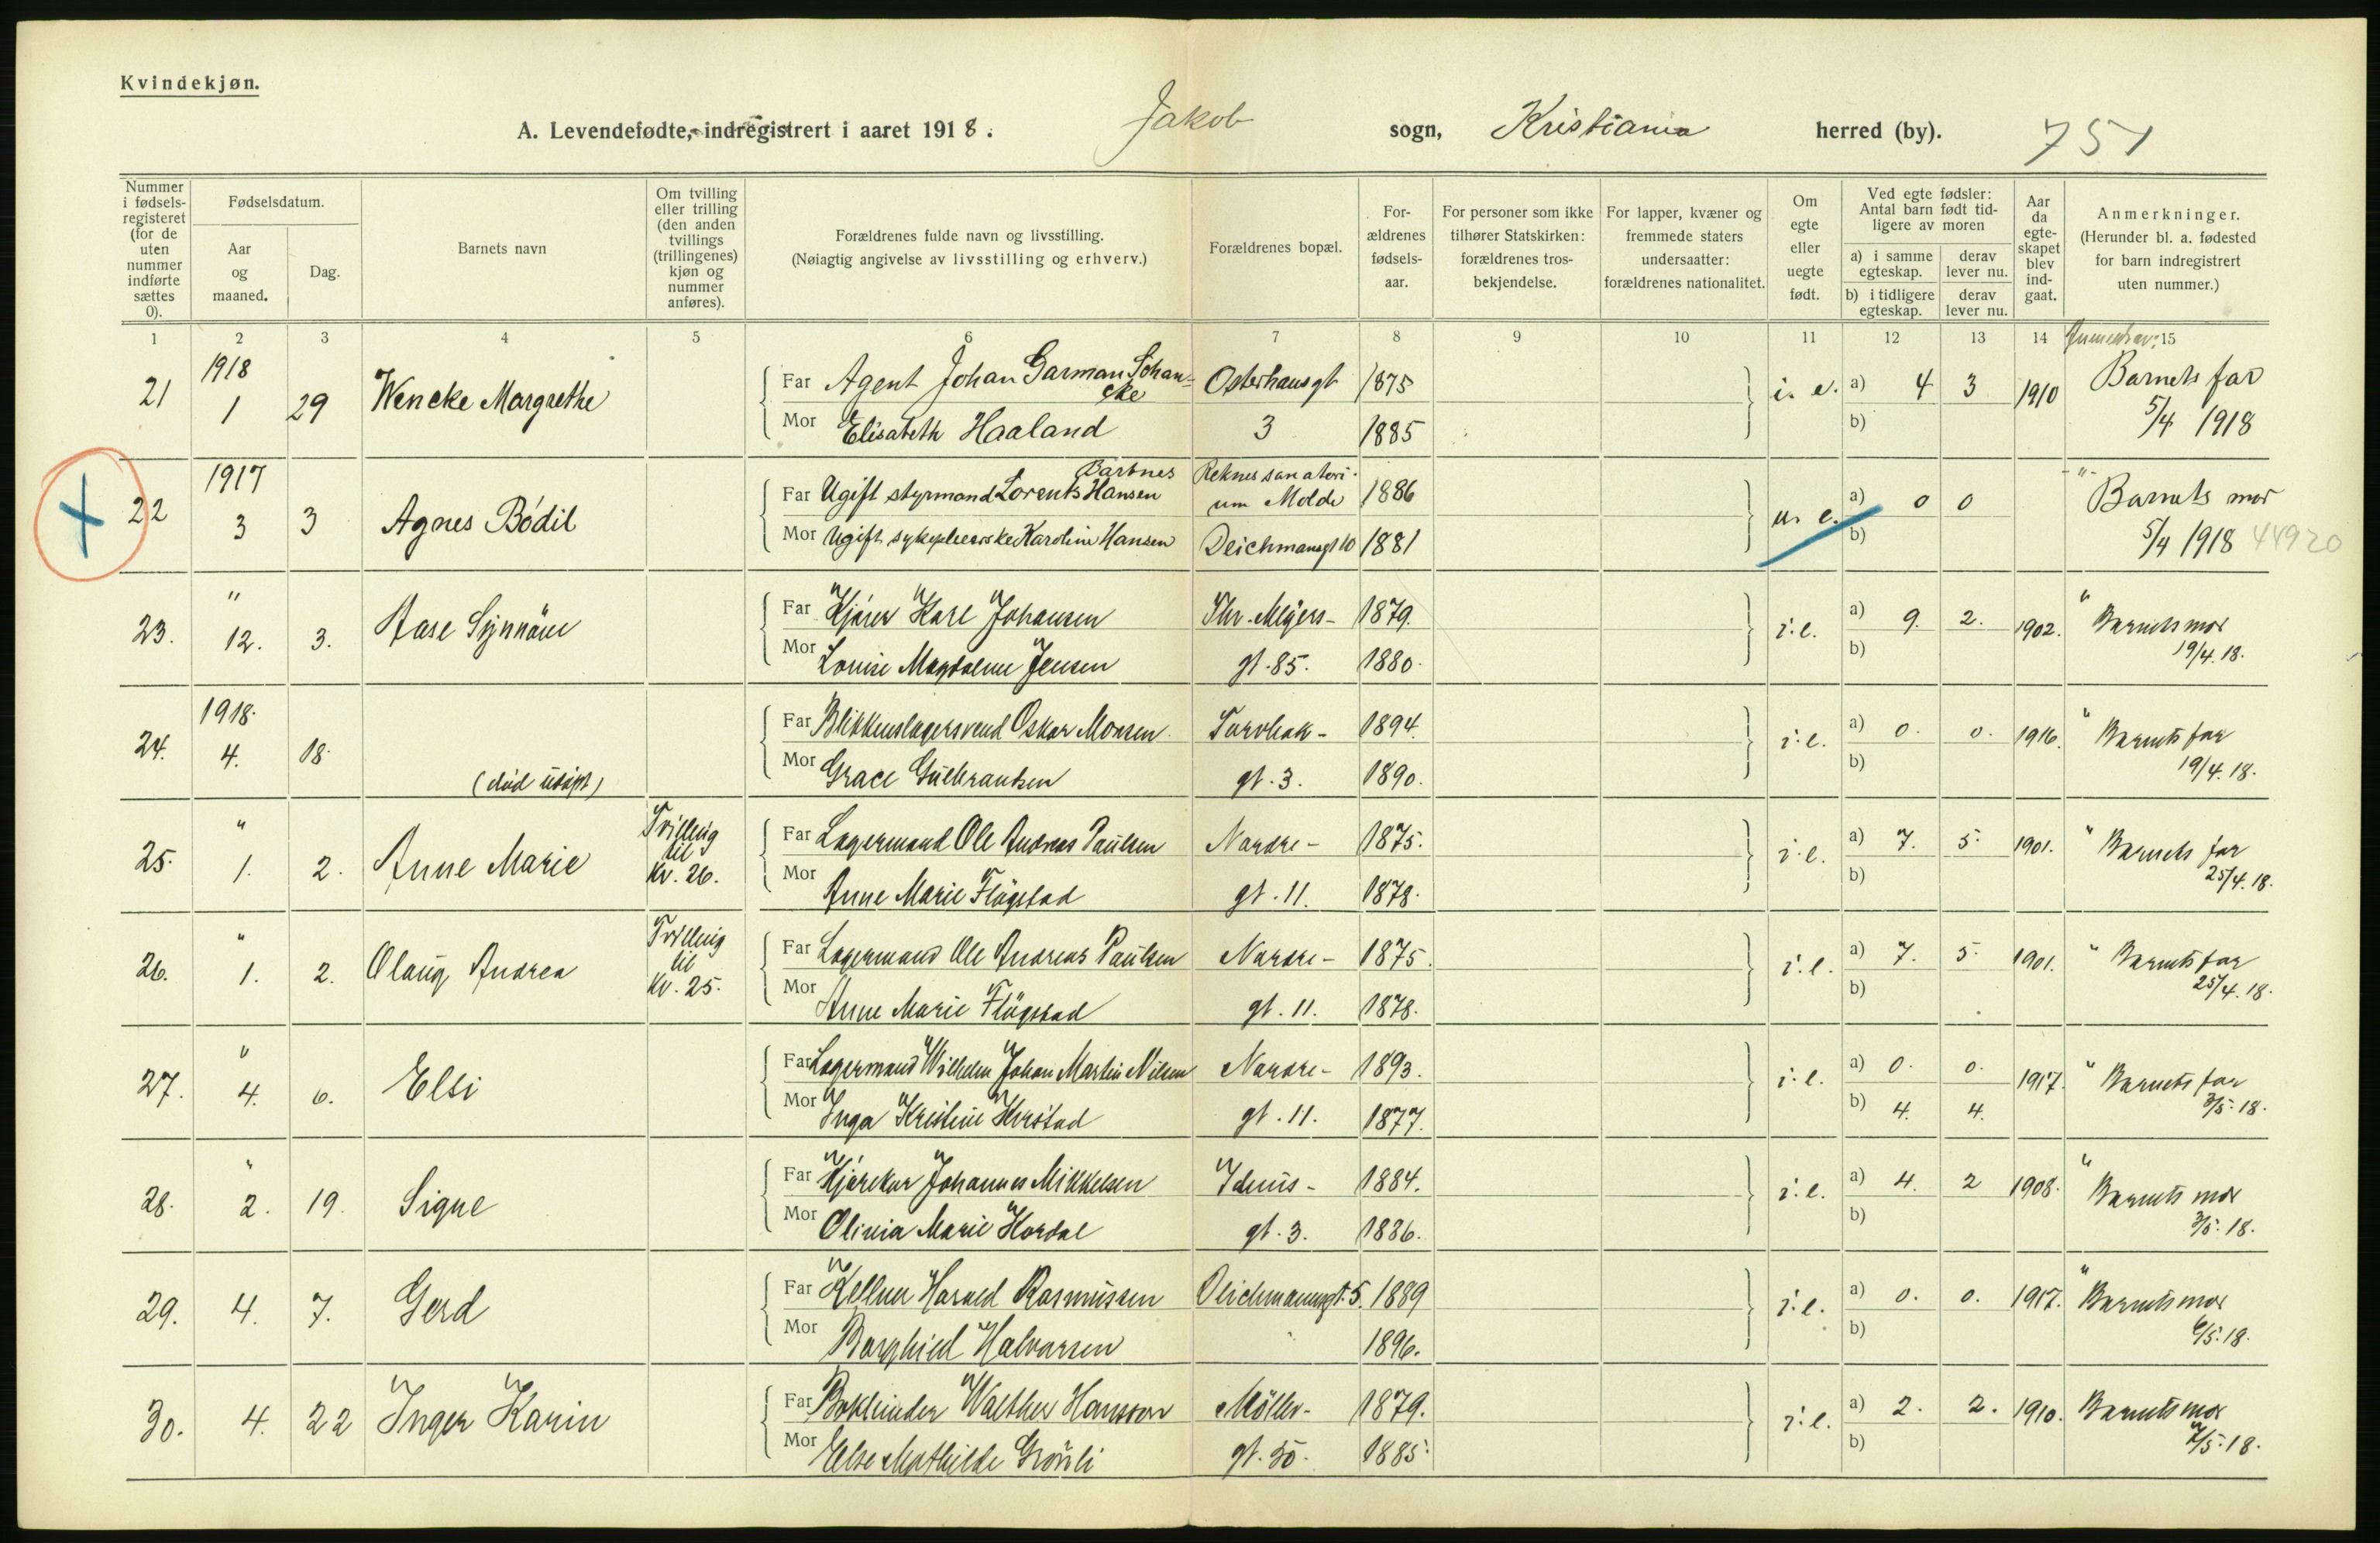 Kvindekjøn.
A. Levendefødte, indregistrert i aaret 1918. Jakob sogn, Kristiania herred (by). 751
Nummer i fødsels-registeret (for de uten nummer indførte sættes 0).
Fødselsdatum.
Aar og maaned.
Dag.
Barnets navn
Om tvilling eller trilling (den anden tvillings (trillingenes) kjøn og nummer anføres).
Forældrenes fulde navn og livsstilling.
(Nøiagtig angivelse av livsstilling og erhverv.)
Forældrenes bopæl.
For-ældrenes fødsels-aar.
For personer som ikke tilhører Statskirken: forældrenes tros-bekjendelse.
For lapper, kvæner og fremmede staters undersaatter: forældrenes nationalitet.
Om egte eller uegte født.
Ved egte fødsler: Antal barn født tid-ligere av moren
a) i samme egteskap.
derav lever nu.
b) i tidligere egteskap.
derav lever nu.
Aar da egte-skapet blev ind-gaat.
Anmerkninger.
(Herunder bl. a. fødested for barn indregistrert uten nummer.)
1 2 3 4 5 6 7 8 9 10 11 12 13 14 15
21 1918 1 29 Wencke Margrethe
Far Agent Johan Garman Schan-cke Osterhausgt 1875 i. e. a) 4 3 1910 Barnets far
Mor Elisabeth Haaland 3 1885 b) 5/4 1918
22 1917 3 3 Agnes Bodil
Far Ugift styrmand Lorents Hansen Bartnes Reknes sanatori-um Molde 1886 u. e. a) 0 0 -"- Barnets mor
Mor Ugift sykepleierske Karoline Hansen Deichmansgt 10 1881 b) 5/4 1918 44920
23. " 12. 3. Aase Synnöve
Far Kjører Karl Johansen Thv. Meyers- 1879. i. e. a) 9. 2. 1902. " Barnets mor
Mor Louise Magdalene Jensen gt. 85. 1880. b) 19/4. 18.
24. 1918. 4. 18. (død udøpt)
Far Blikkenslagersvend Oskar Monsen Torvbak- 1894. i. e. a) 0. 0. 1916. " Barnets far
Mor Grace Gulbrantsen gt. 3. 1890. b) 19/4. 18.
25. " 1. 2. Anne Marie Tvilling til Kv. 26.
Far Lagermand Ole Andreas Paulsen Nordre- 1875. i. e. a) 7. 5. 1901. " Barnets far
Mor Anne Marie Flögstad gt. 11. 1878. b) 25/4. 18.
26. " 1. 2. Olaug Andrea Tvilling til Kv. 25.
Far Lagermand Ole Andreas Paulsen Nordre- 1875. i. e. a) 7. 5. 1901. " Barnets far
Mor Anne Marie Flögstad gt. 11. 1878. b) 25/4. 18.
27. " 4. 6. Elsi
Far Lagermand Wilhelm Johan Martin Nilsen Nordre- 1893. i. e. a) 0. 0. 1917. " Barnets far
Mor Inga Kristine Herstad gt. 11. 1877. b) 4. 4. 3/5. 18.
28. " 2. 19. Signe
Far Kjørekar Johannes Mikkelsen Iduns- 1884. i. e. a) 4. 2 1908. " Barnets mor
Mor Olivia Marie Hordal gt. 3. 1886. b) 3/5. 18.
29. 4. 7. Gerd
Far Kellner Harald Rasmussen Deichmannsgt. 5. 1889 i. e. a) 0. 0. 1917. " Barnets mor
Mor Borghild Halvorsen 1896. b) 6/5. 18.
30. 4. 22 Inger Karin
Far Bokbinder Walther Hansson Möller- 1879. i. e. a) 2. 2. 1910. Barnets mor
Mor Else Mathilde Grönli gt. 30. 1885. b) 7/5. 18.